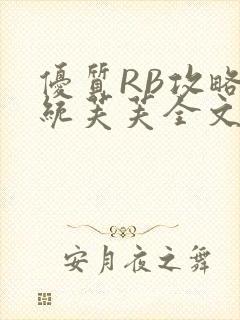 優質RB攻略
統芙芙全文
安月夜之舞